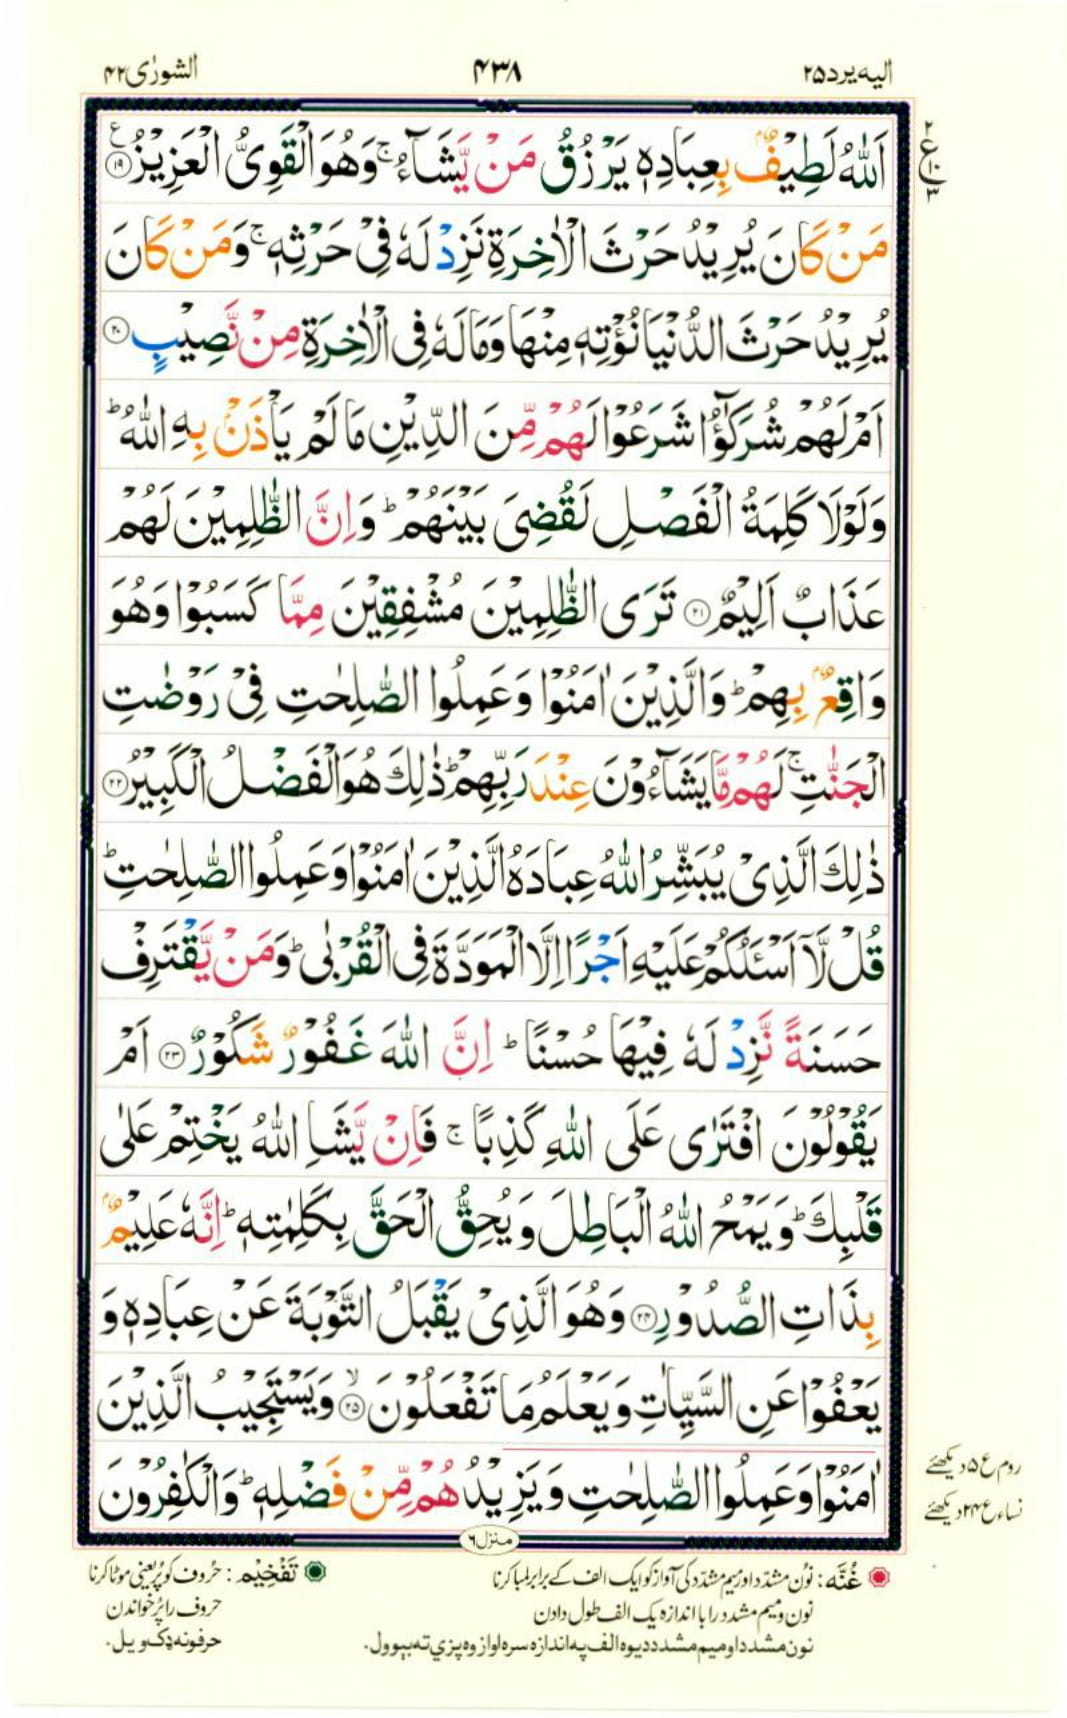 الیه یرد ۲۵
۴۳۸
الشورٰی ۴۲
اَللّٰهُ لَطِیْفٌۢ بِعِبَادِهٖ یَرْزُقُ مَنْ یَّشَآءُ ۚ وَهُوَ الْقَوِیُّ الْعَزِیْزُ ﴿۱۹﴾ ع
مَنْ كَانَ یُرِیْدُ حَرْثَ الْاٰخِرَةِ نَزِدْ لَهٗ فِیْ حَرْثِهٖ ۚ وَمَنْ كَانَ
یُرِیْدُ حَرْثَ الدُّنْیَا نُؤْتِهٖ مِنْهَا وَمَا لَهٗ فِی الْاٰخِرَةِ مِنْ نَّصِیْبٍ ﴿۲۰﴾
اَمْ لَهُمْ شُرَكٰٓؤُا شَرَعُوْا لَهُمْ مِّنَ الدِّیْنِ مَا لَمْ یَاْذَنْۢ بِهِ اللّٰهُ ؕ
وَلَوْلَا كَلِمَةُ الْفَصْلِ لَقُضِیَ بَیْنَهُمْ ؕ وَاِنَّ الظّٰلِمِیْنَ لَهُمْ
عَذَابٌ اَلِیْمٌ ﴿۲۱﴾ تَرَی الظّٰلِمِیْنَ مُشْفِقِیْنَ مِمَّا كَسَبُوْا وَهُوَ
وَاقِعٌۢ بِهِمْ ؕ وَالَّذِیْنَ اٰمَنُوْا وَعَمِلُوا الصّٰلِحٰتِ فِیْ رَوْضٰتِ
الْجَنّٰتِ ۚ لَهُمْ مَّا یَشَآءُوْنَ عِنْدَ رَبِّهِمْ ؕ ذٰلِكَ هُوَ الْفَضْلُ الْكَبِیْرُ ﴿۲۲﴾
ذٰلِكَ الَّذِیْ یُبَشِّرُ اللّٰهُ عِبَادَهُ الَّذِیْنَ اٰمَنُوْا وَعَمِلُوا الصّٰلِحٰتِ ؕ
قُلْ لَّاۤ اَسْـَٔلُكُمْ عَلَیْهِ اَجْرًا اِلَّا الْمَوَدَّةَ فِی الْقُرْبٰی ؕ وَمَنْ یَّقْتَرِفْ
حَسَنَةً نَّزِدْ لَهٗ فِیْهَا حُسْنًا ؕ اِنَّ اللّٰهَ غَفُوْرٌ شَكُوْرٌ ﴿۲۳﴾ اَمْ
یَقُوْلُوْنَ افْتَرٰی عَلَی اللّٰهِ كَذِبًا ۚ فَاِنْ یَّشَاِ اللّٰهُ یَخْتِمْ عَلٰی
قَلْبِكَ ؕ وَیَمْحُ اللّٰهُ الْبَاطِلَ وَیُحِقُّ الْحَقَّ بِكَلِمٰتِهٖ ؕ اِنَّهٗ عَلِیْمٌۢ
بِذَاتِ الصُّدُوْرِ ﴿۲۴﴾ وَهُوَ الَّذِیْ یَقْبَلُ التَّوْبَةَ عَنْ عِبَادِهٖ وَ
یَعْفُوْا عَنِ السَّیِّاٰتِ وَیَعْلَمُ مَا تَفْعَلُوْنَ ﴿۲۵﴾ۙ وَیَسْتَجِیْبُ الَّذِیْنَ
اٰمَنُوْا وَعَمِلُوا الصّٰلِحٰتِ وَیَزِیْدُهُمْ مِّنْ فَضْلِهٖ ؕ وَالْكٰفِرُوْنَ
۲ ع ۱۰ ۳
روم ع ۵ دیکھئے
نساء ع ۲۴ دیکھئے
منزل ۶
غُنَّه: نُون مشدّد اور میم مشدّد کی آواز کو ایک الف کے برابر لمبا کرنا
نون و میم مشدد را با اندازه یک الف طول دادن
نون مشدد او میم مشدد د یوه الف په اندازه سره اواز وه پزي ته بیوول.
تَفْخِیْم: حُروف کو پُر یعنی موٹا کرنا
حروف را پُر خواندن
حرفونه ډک ویل.